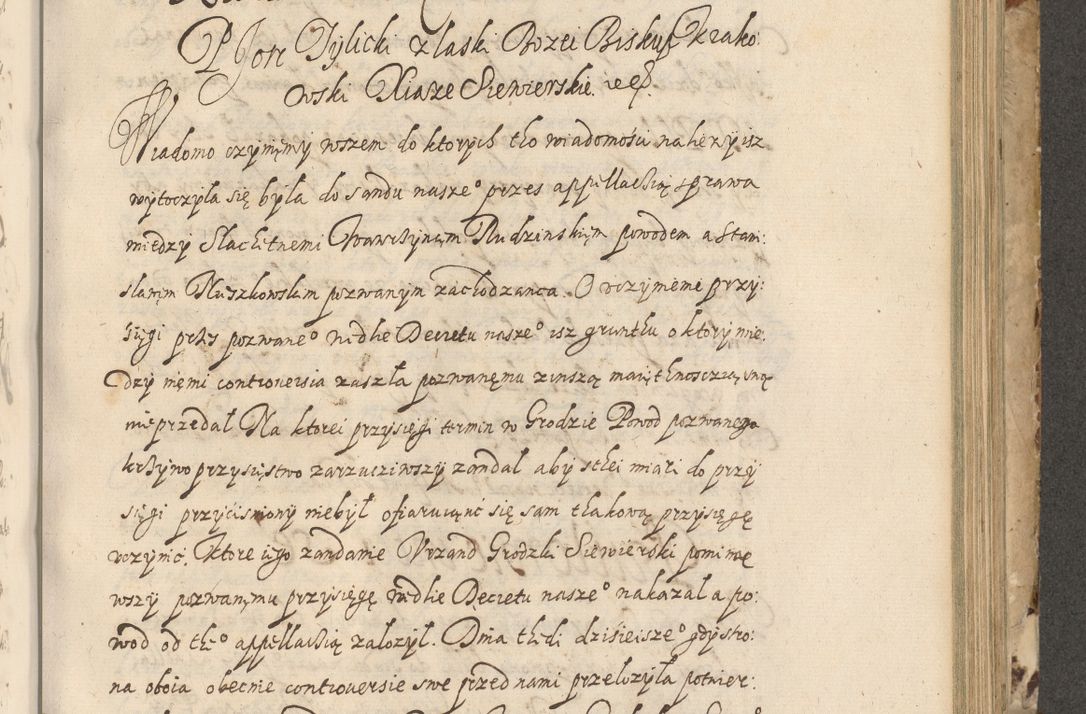 Piotr Tylicki z laski Bozei Biskup krako:
wski Xiaze Siewierskie. etc.
Wiadomo czyniemy wszem do ktorych tho wiadomosci nalezy isz
wytoczyla się byla do sandu nasze° przes appellacką sprawa
miedzy Slachetnemi Wawrzyncem Rudzinskiem powodem a Stani:
slawem Kuszkowskim pozwanym zachodzanca. O uczynienie przy:
sięgi przes pozwane° wedlie Decretu nasze° isz gruntku o ktory mie:
dzy niemi controversia zaszła pozwanemu
nieprzedał Na ktorei przysięgi termin w Grodzie Powod pozwanego
krzywoprzysięstwo zarzuciwszy zandal aby sthei miari do przy
sięgi przycisniony niebył ofiaruiąnc się sam thakową przysięgę
uczynic. Ktore iego zandanie Urzand Grodzki Siewierski pominąw
wszy pozwanemu przysięgę wedlie Decretu nasze° nakazal a po:
wod od the° appellacką zalozył. Dnia thedi dzisieisze° gdy stro:
na oboia obecnie controversie swe przed nami przelozyła potwier: